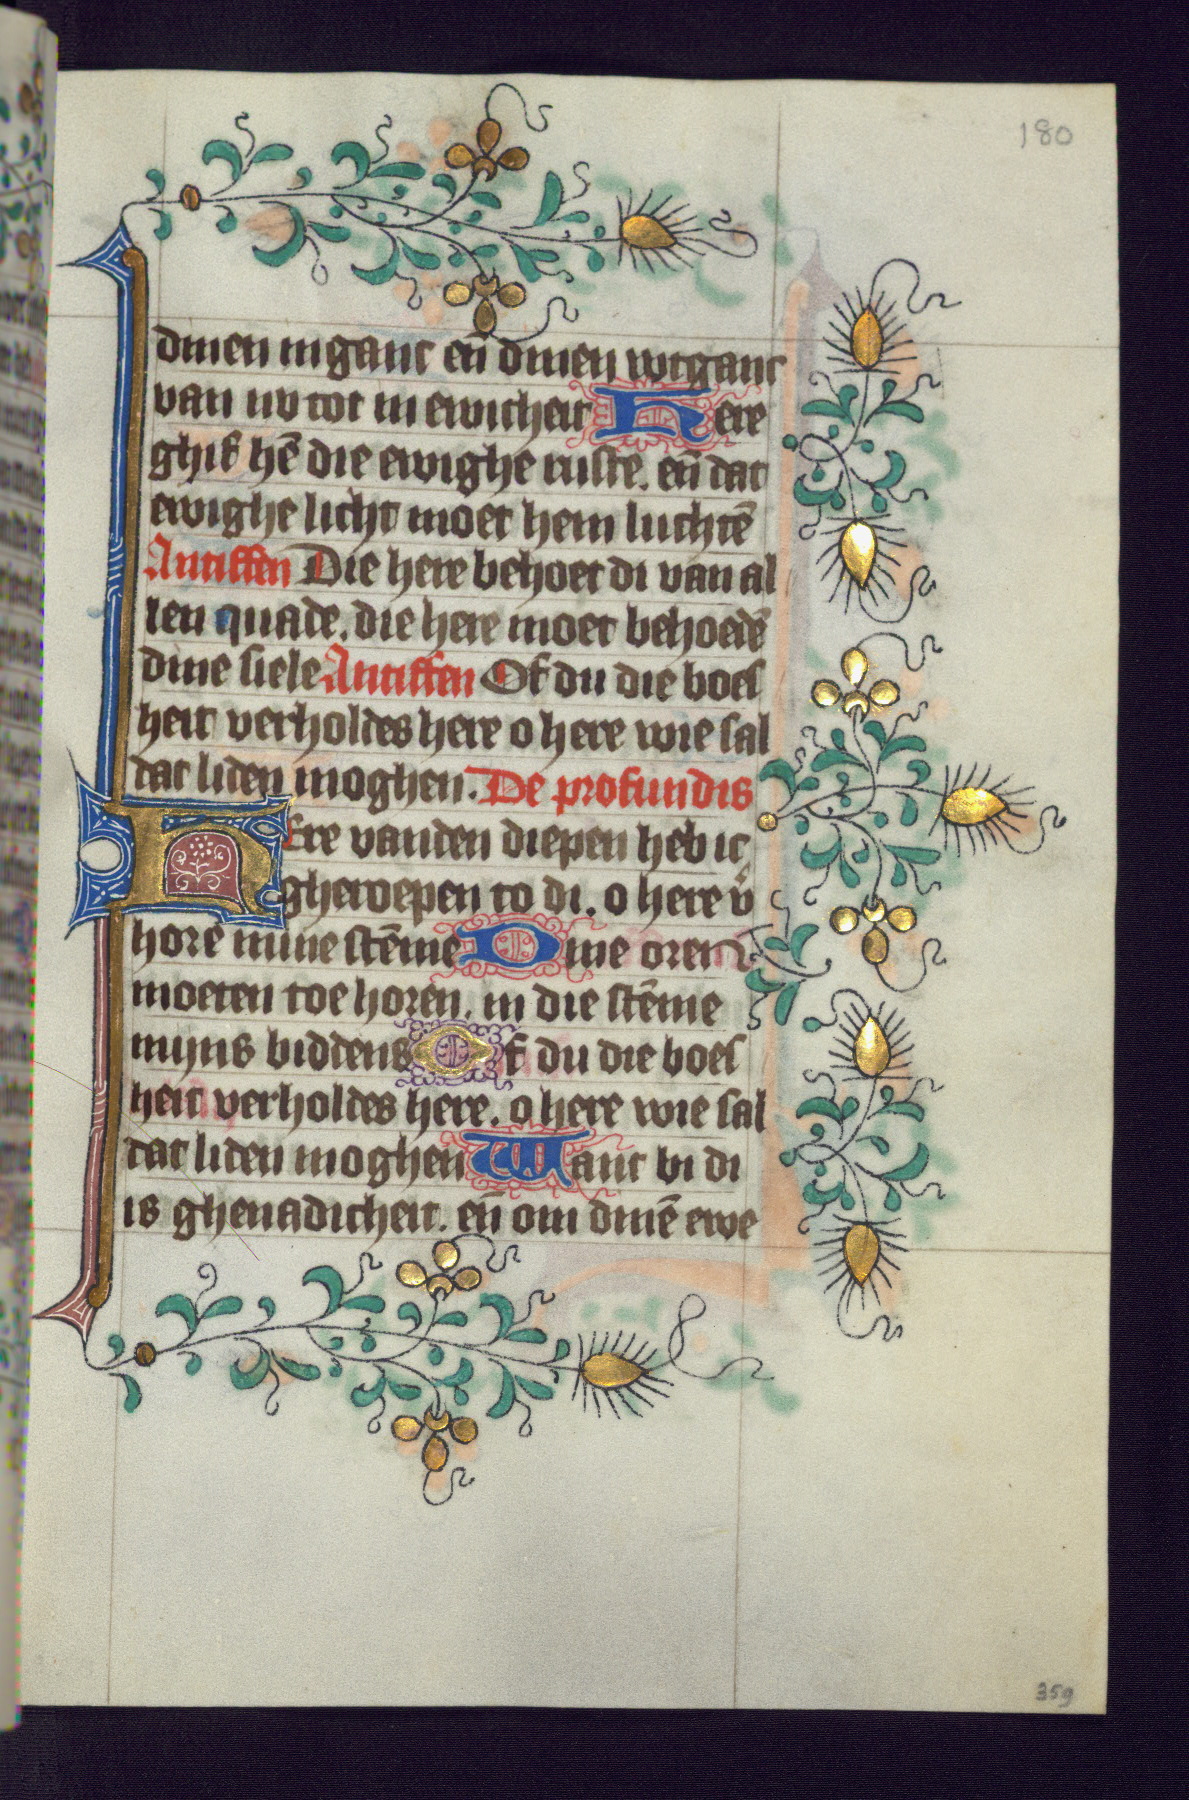 180
dinen inganc eñ dinen wtganc
van nv tot in ewicheit Here
ghif hē die ewighe ruste. eñ dat
ewighe licht moet hem luchtē
Antiffen Die here behoet di van al
len quade. die here moet behoedē
dine siele Antiffen Of du die boes
heit verholdes here o here wie sal
dat liden moghen. De profundis
Here vanden diepen heb ic
gheroepen to di. o here v̄
hore mine stēme Dine oren
moeten toe horen. in die stēme
mijns biddens Of du die boes
heit verholdes here. o here wie sal
dat liden moghen Want bi di
is ghenadicheit. eñ om dinē ewe
359